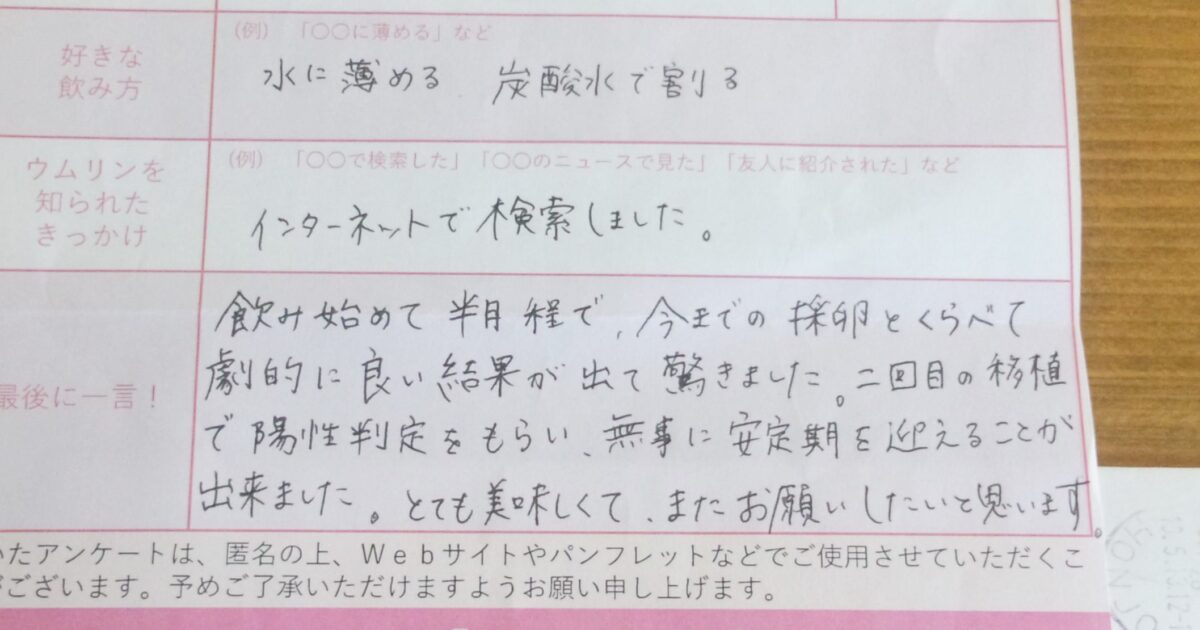 好きな
飲み方
(例) 「〇〇に薄める」など
水に薄める 炭酸水で割る
ウムリンを
知られた
きっかけ
(例) 「〇〇で検索した」「〇〇のニュースで見た」「友人に紹介された」など
インターネットで検索しました。
最後に一言！
飲み始めて半月程で、今までの採卵とくらべて
劇的に良い結果が出て驚きました。二回目の移植
で陽性判定をもらい、無事に安定期を迎えることが
出来ました。とても美味しくて、またお願いしたいと思います。
いたアンケートは、匿名の上、Ｗｅｂサイトやパンフレットなどでご使用させていただくこ
がございます。予めご了承いただけますようお願い申し上げます。